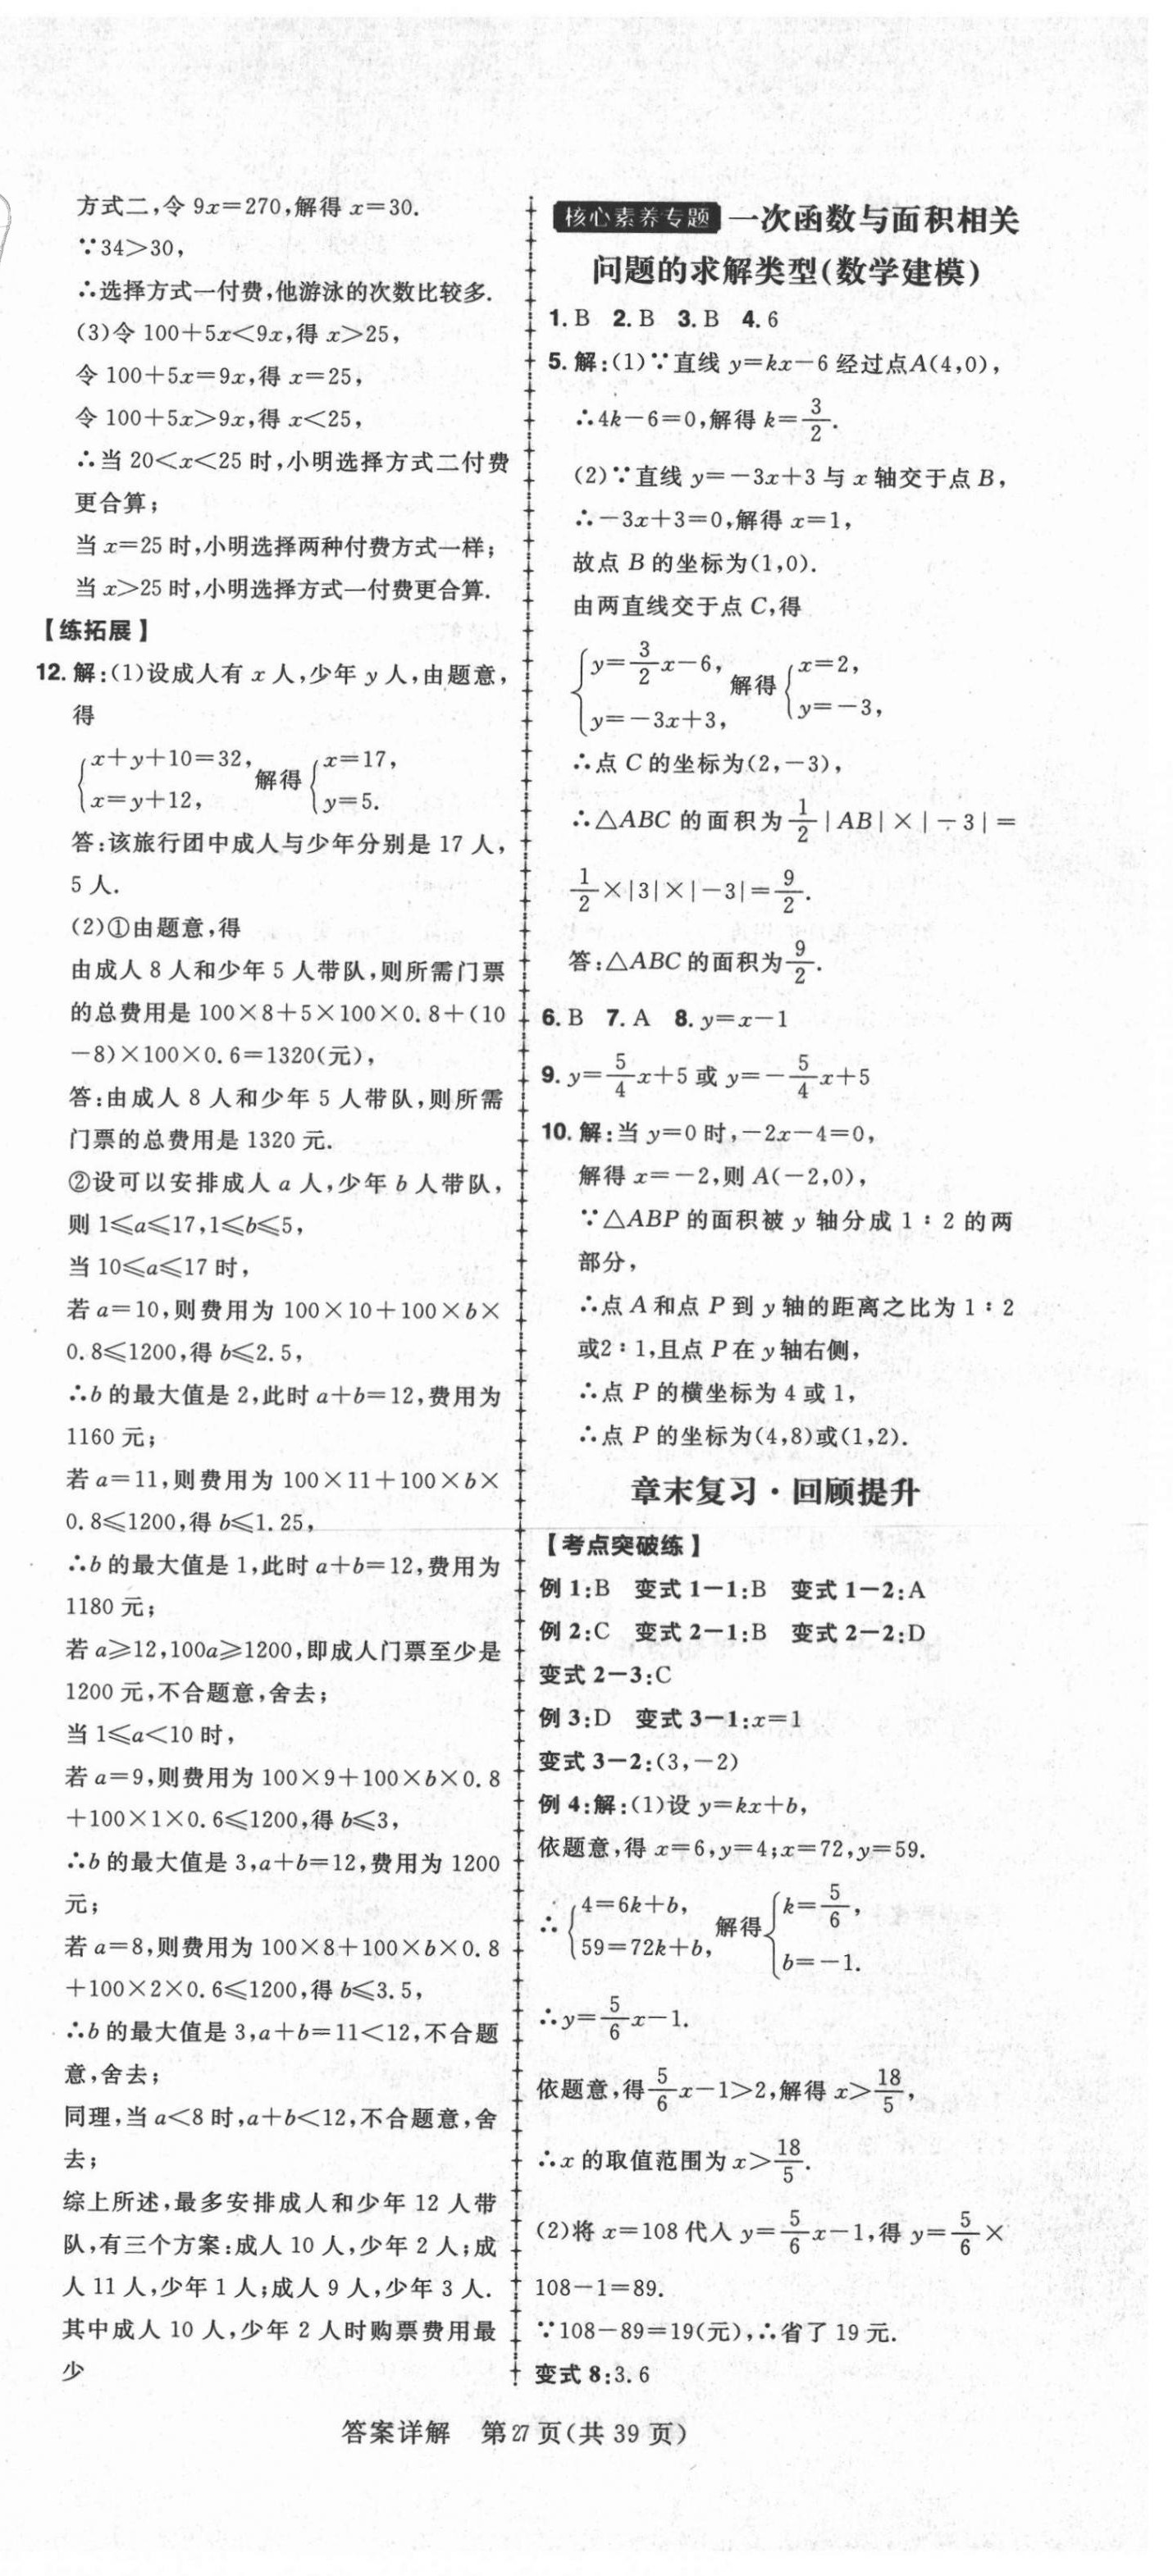 方式二,令 9x=270,解得 x=30.
∵34>30,
∴选择方式一付费,他游泳的次数比较多.
(3)令 100+5x<9x,得 x>25,
令 100+5x=9x,得 x=25,
令 100+5x>9x,得 x<25,
∴当 20<x<25 时,小明选择方式二付费
更合算;
当 x=25 时,小明选择两种付费方式一样;
当 x>25 时,小明选择方式一付费更合算.
【练拓展】
12. 解:(1)设成人有 x 人,少年 y 人,由题意,
得
{x+y+10=32, x=y+12, 解得 {x=17, y=5.
答:该旅行团中成人与少年分别是 17 人,
5 人.
(2)①由题意,得
由成人 8 人和少年 5 人带队,则所需门票
的总费用是 100×8+5×100×0.8+(10
-8)×100×0.6=1320(元),
答:由成人 8 人和少年 5 人带队,则所需
门票的总费用是 1320 元.
②设可以安排成人 a 人,少年 b 人带队,
则 1⩽a⩽17,1⩽b⩽5,
当 10⩽a⩽17 时,
若 a=10,则费用为 100×10+100×b×
0.8⩽1200,得 b⩽2.5,
∴b 的最大值是 2,此时 a+b=12,费用为
1160 元;
若 a=11,则费用为 100×11+100×b×
0.8⩽1200,得 b⩽1.25,
∴b 的最大值是 1,此时 a+b=12,费用为
1180 元;
若 a⩾12,100a⩾1200,即成人门票至少是
1200 元,不合题意,舍去;
当 1⩽a<10 时,
若 a=9,则费用为 100×9+100×b×0.8
+100×1×0.6⩽1200,得 b⩽3,
∴b 的最大值是 3,a+b=12,费用为 1200
元;
若 a=8,则费用为 100×8+100×b×0.8
+100×2×0.6⩽1200,得 b⩽3.5,
∴b 的最大值是 3,a+b=11<12,不合题
意,舍去;
同理,当 a<8 时,a+b<12,不合题意,舍
去;
综上所述,最多安排成人和少年 12 人带
队,有三个方案:成人 10 人,少年 2 人;成
人 11 人,少年 1 人;成人 9 人,少年 3 人.
其中成人 10 人,少年 2 人时购票费用最
少
核心素养专题 一次函数与面积相关
问题的求解类型(数学建模)
1. B 2. B 3. B 4. 6
5. 解:(1)∵直线 y=kx-6 经过点A(4,0),
∴4k-6=0,解得 k=3/2.
(2)∵直线 y=-3x+3 与 x 轴交于点 B,
∴-3x+3=0,解得 x=1,
故点 B 的坐标为(1,0).
由两直线交于点 C,得
{y=3/2x-6, y=-3x+3, 解得 {x=2, y=-3,
∴点 C 的坐标为(2,-3),
∴△ABC 的面积为1/2|AB|×|-3|=
1/2×|3|×|-3|=9/2.
答:△ABC 的面积为9/2.
6. B 7. A 8. y=x-1
9. y=5/4x+5 或 y=-5/4x+5
10. 解:当 y=0 时,-2x-4=0,
解得 x=-2,则 A(-2,0),
∵△ABP 的面积被 y 轴分成 1∶2 的两
部分,
∴点 A 和点 P 到 y 轴的距离之比为 1∶2
或2∶1,且点 P 在 y 轴右侧,
∴点 P 的横坐标为 4 或 1,
∴点 P 的坐标为(4,8)或(1,2).
章末复习·回顾提升
【考点突破练】
例 1:B 变式 1-1:B 变式 1-2:A
例 2:C 变式 2-1:B 变式 2-2:D
变式 2-3:C
例 3:D 变式 3-1:x=1
变式 3-2:(3,-2)
例 4:解:(1)设 y=kx+b,
依题意,得 x=6,y=4;x=72,y=59.
∴{4=6k+b, 59=72k+b, 解得{k=5/6, b=-1.
∴y=5/6x-1.
依题意,得5/6x-1>2,解得 x>18/5,
∴x 的取值范围为 x>18/5.
(2)将 x=108 代入 y=5/6x-1,得 y=5/6×
108-1=89.
∵108-89=19(元),∴省了 19 元.
变式 8:3.6
答案详解 第27页(共 39 页)